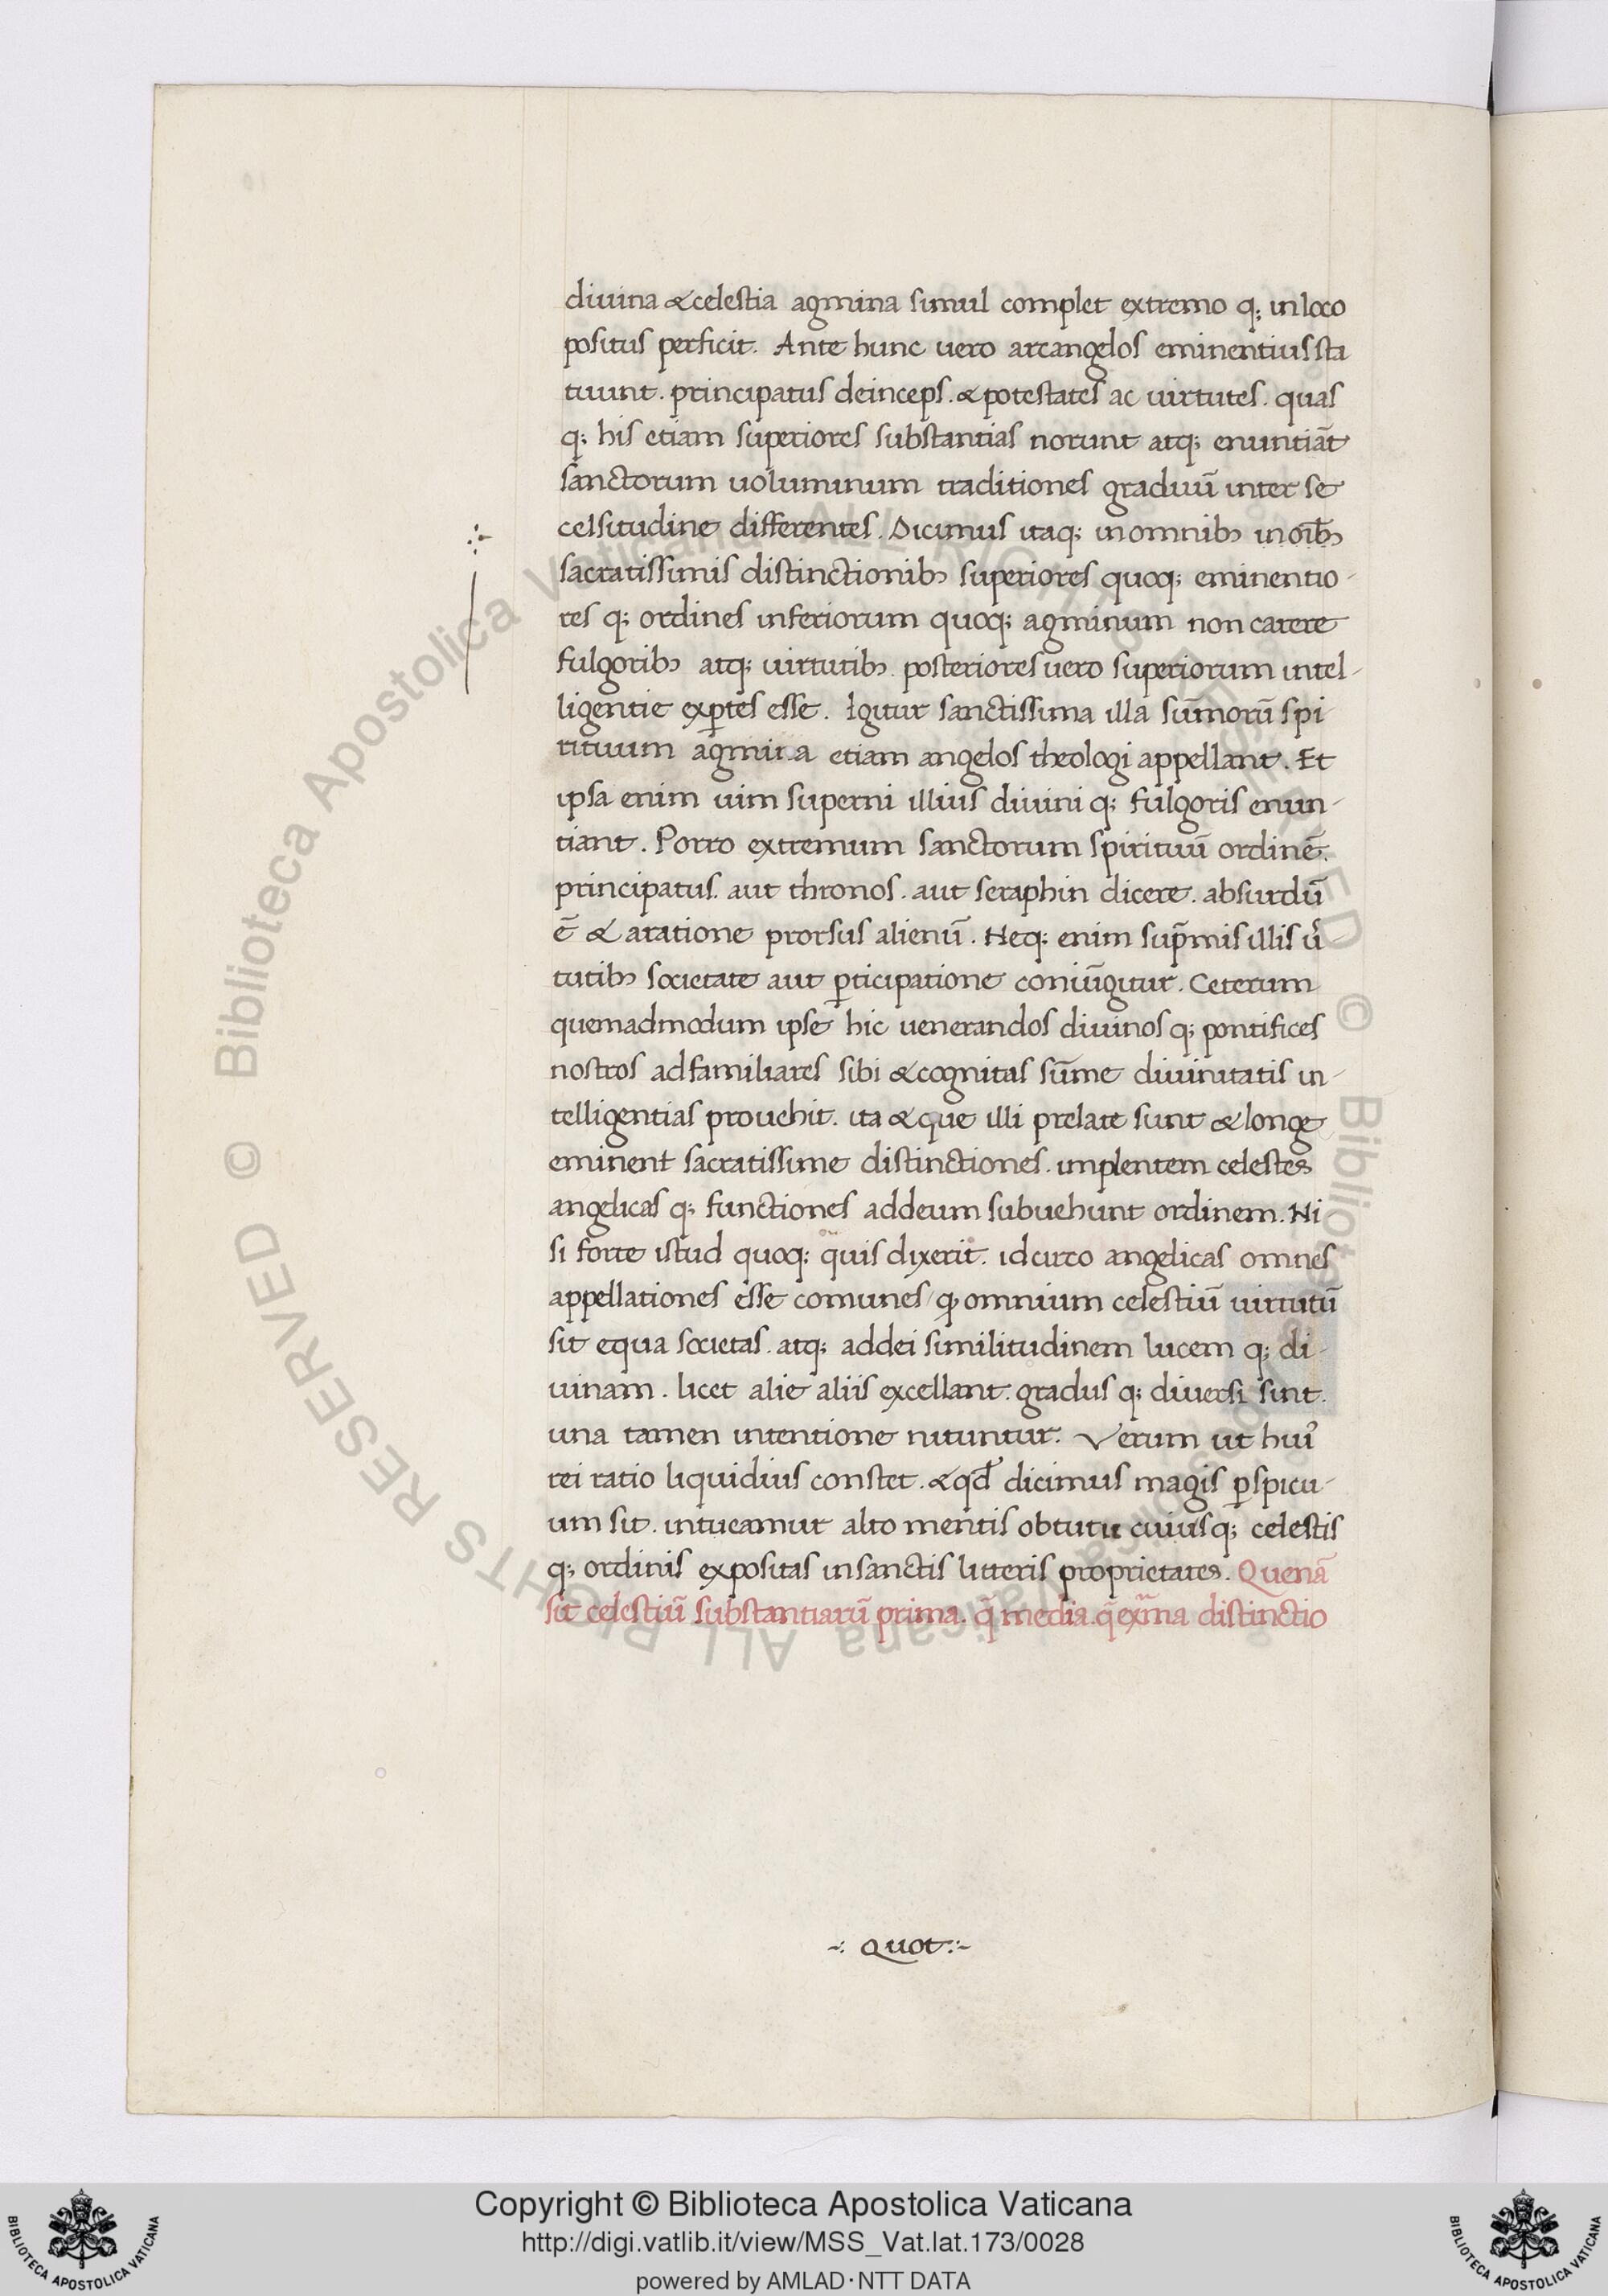 divina & celestia agmina simul complet extremo q; in loco
positus perficit. Ante hunc uero arcangelos eminentius sta
tuunt. principatus deinceps. & potestates ac uirtutes. quas
q; his etiam superiores substantias norunt atq; enuntiāt
sanctorum uoluminum traditiones graduū inter se
celsitudine differentes. Dicimus itaq; in omnibꝰ in oībꝰ
sacratissimis distinctionibꝰ superiores quoq; eminentio-
res q; ordines inferiorum quoq; agminum non carere
fulgoribꝰ atq; uirtutibꝰ. posteriores uero superiorum intel-
ligentie exꝑtes esse. Igitur sanctissima illa sūmorū spi
rituum agmina etiam angelos theologi appellant. Et
ipsa enim uim superni illius diuini q; fulgoris enun-
tiant. Porro extremum sanctorum spirituū ordinē.
principatus. aut thronos. aut seraphin dicere. absurdū
ē & aratione prorsus alienū. Neq; enim sup̄mis illis ur̄-
tutibꝰ societate aut ꝑticipatione coniūgitur. Ceterum
quemadmodum ipse hic uenerandos diuinos q; pontifices
nostros ad familiares sibi & cognitas sūme diuinitatis in-
telligentias prouehit. ita & que illi prelate sunt & longe
eminent sacratissime distinctiones. implentem celestes
angelicas q; functiones ad deum subuehunt ordinem. Ni-
si forte istud quoq; quis dixerit. idcirco angelicas omnes
appellationes esse comunes / ꝙ omnium celestiū uirtutū
sit equa societas. atq; ad dei similitudinem lucem q; di-
uinam. licet alie aliis excellant. gradus q; diuersi sint.
una tamen intentione nituntur. Verum ut huiꝰ
rei ratio liquidius constet. & qd̄ dicimus magis ꝑspicu-
um sit. intueamur alto mentis obtutu cuiusq; celestis
q; ordinis expositas in sanctis litteris proprietates. Quenā
sit celestiū substantiarū prima. q̄ media. q̄ ext̄ma distinctio
-: Quot :-
Copyright © Biblioteca Apostolica Vaticana
http://digi.vatlib.it/view/MSS_Vat.lat.173/0028
powered by AMLAD·NTT DATA
BIBLIOTECA APOSTOLICA VATICANA
BIBLIOTECA APOSTOLICA VATICANA
© Biblioteca Apostolica Vaticana ALL RIGHTS RESERVED © Biblioteca Apostolica Vaticana ALL RIGHTS RESERVED